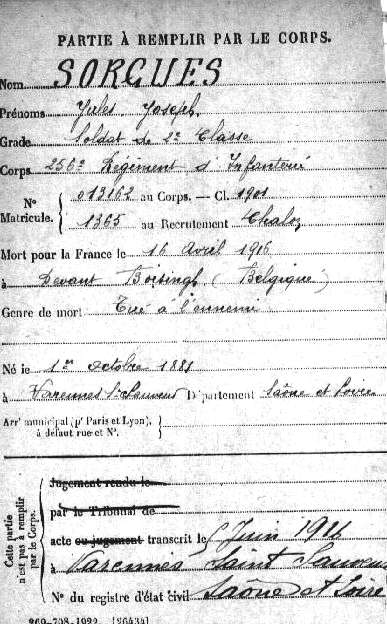 PARTIE À REMPLIR PAR LE CORPS.
Nom SORGUES
Prénoms Jules Joseph
Grade Soldat de 2e Classe
Corps 256e Régiment d'Infanterie
N° Matricule. { 013162 au Corps. — Cl. 1901
1365 au Recrutement Chalon
Mort pour la France le 16 Avril 1916
à Devant Boesingh (Belgique)
Genre de mort Tué à l'ennemi
Né le 1er octobre 1881
à Varennes St Sauveur Département Saône et Loire
Arr' municipal (p' Paris et Lyon), à défaut rue et N°.
Cette partie n'est pas à remplir par le Corps.
Jugement rendu le
par le Tribunal de
acte ou jugement transcrit le Juin
à Varennes Saint Sauveur
N° du registre d'état civil Saône et Loire